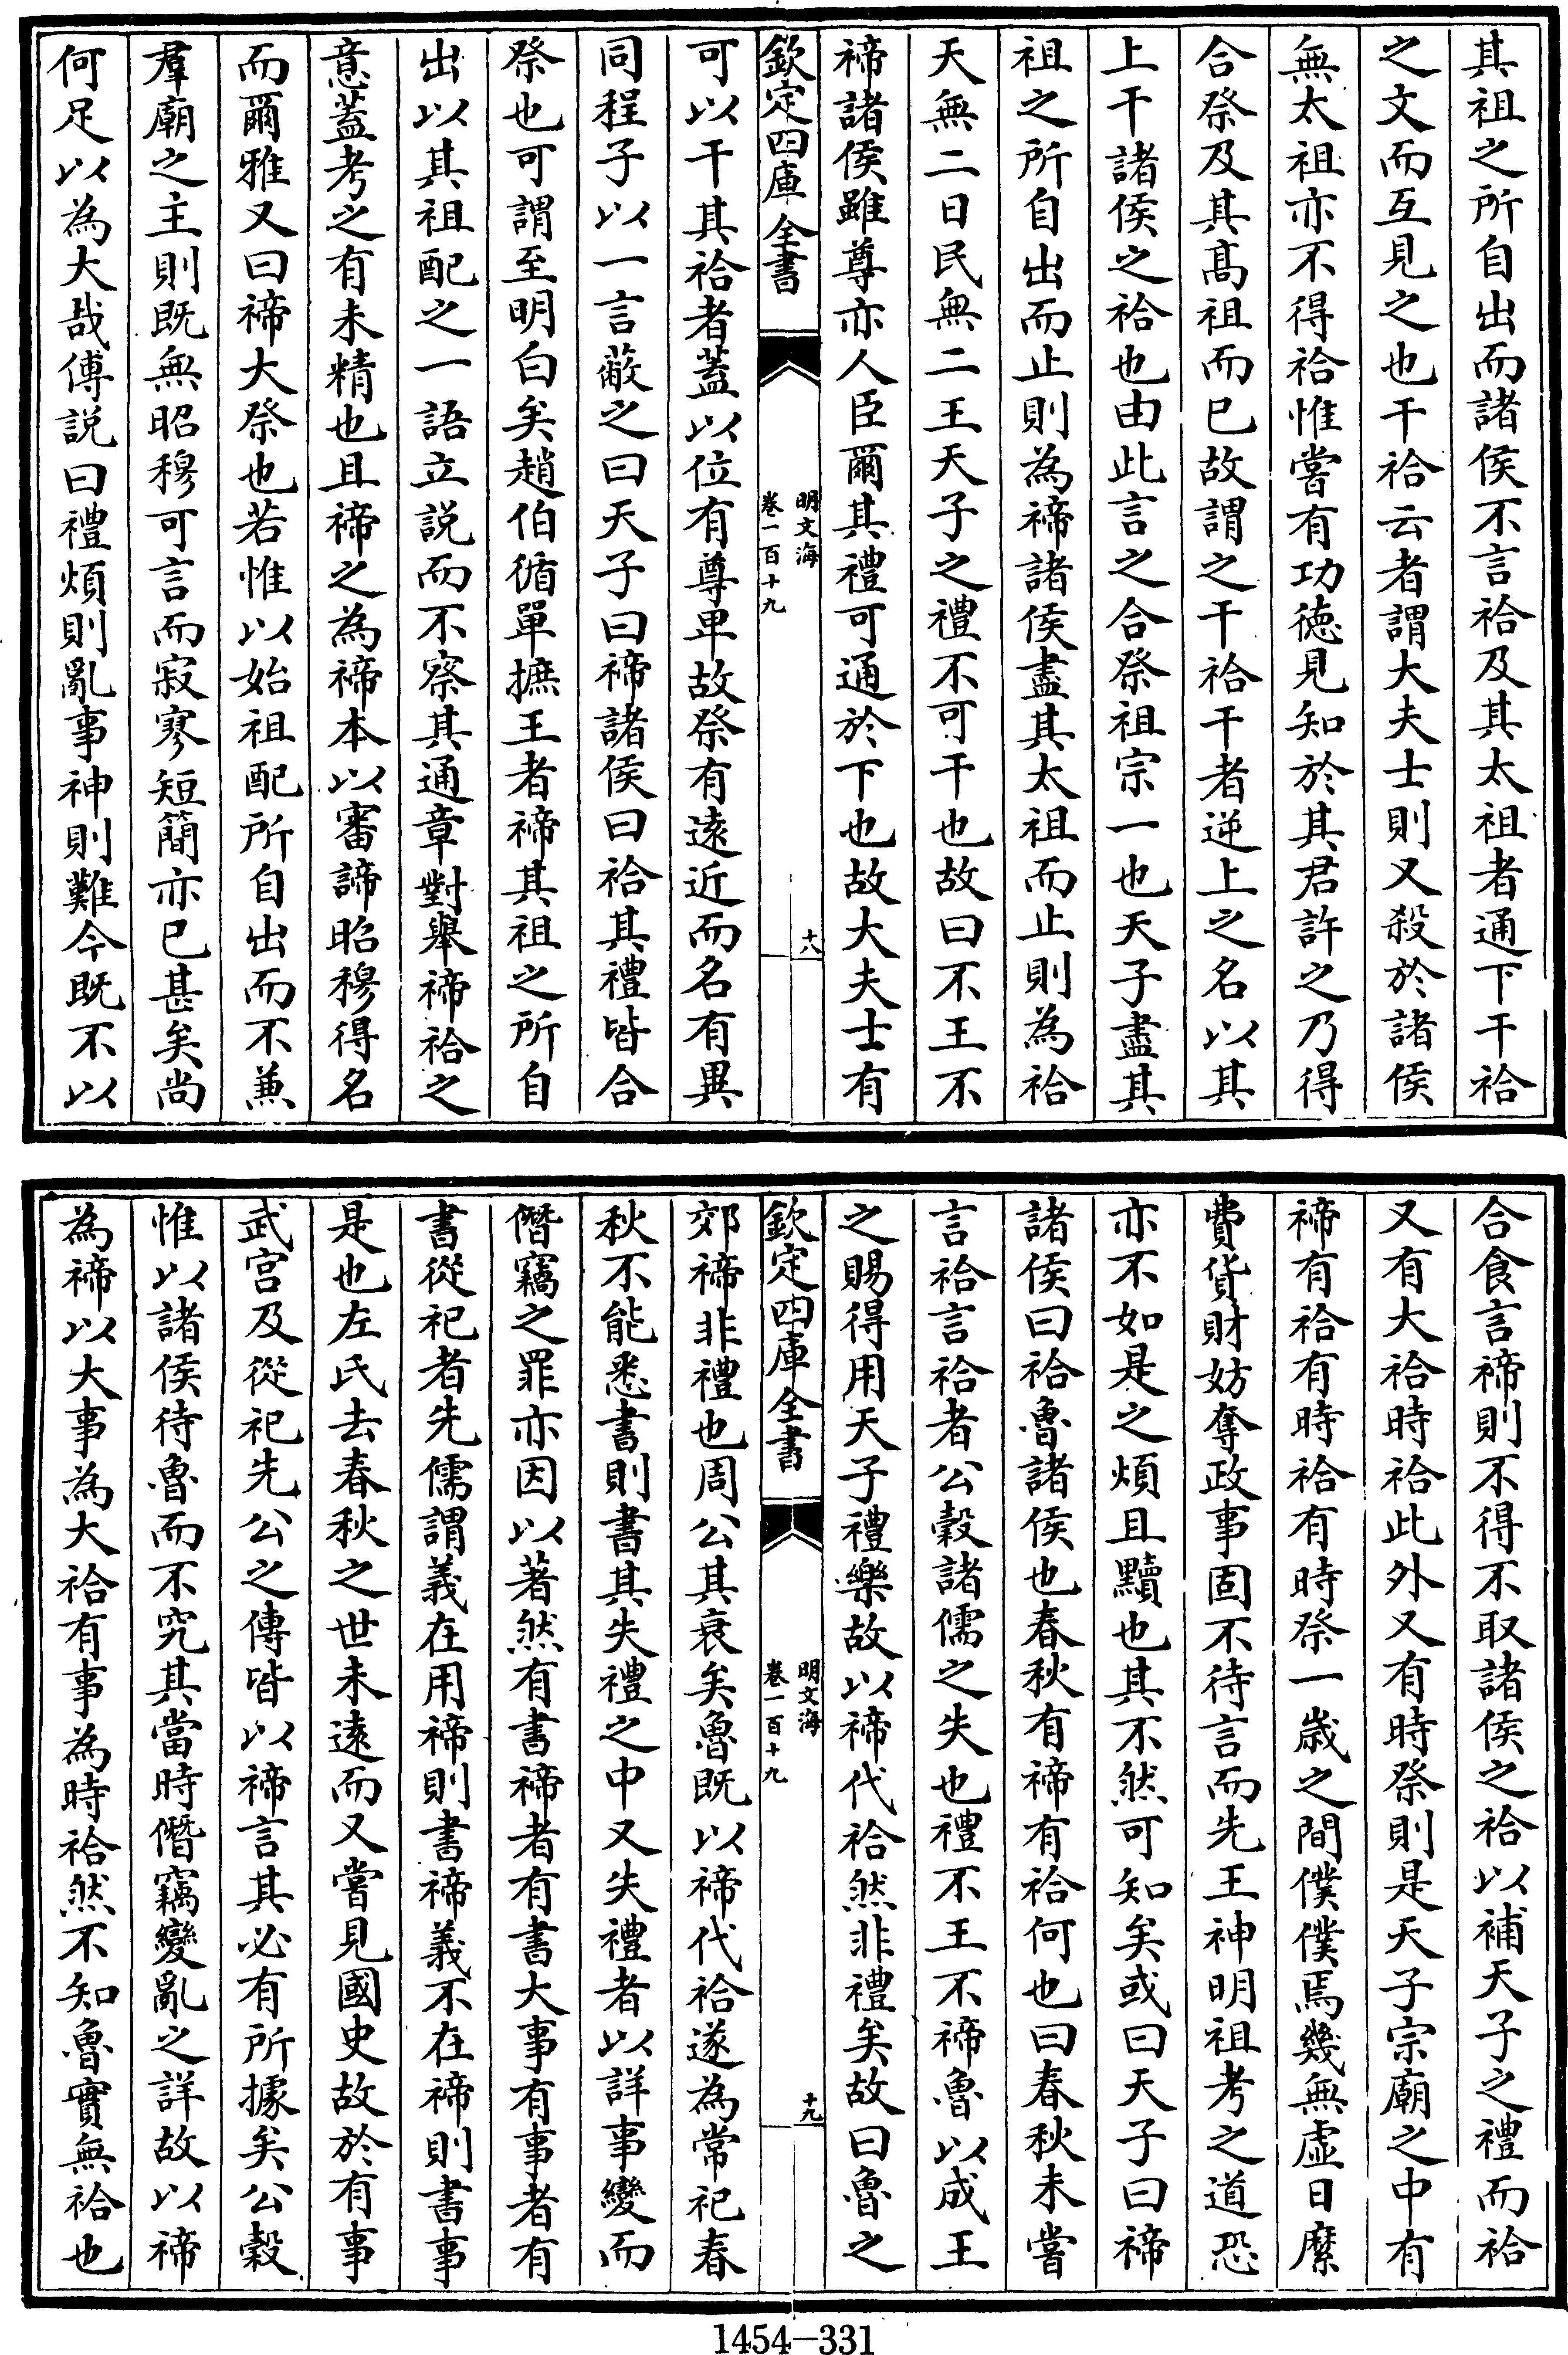 其祖之所自出而諸侯不言祫及其太祖者通下干祫
之文而互見之也干祫云者謂大夫士則又殺於諸侯
無太祖亦不得祫惟嘗有功徳見知於其君許之乃得
合祭及其髙祖而已故謂之干祫干者逆上之名以其
上干諸侯之祫也由此言之合祭祖宗一也天子盡其
祖之所自出而止則為禘諸侯盡其太祖而止則為祫
天無二日民無二王天子之禮不可干也故曰不王不
禘諸侯雖尊亦人臣爾其禮可通於下也故大夫士有
欽定四庫全書
明文海
卷一百十九
十八
可以干其祫者蓋以位有尊卑故祭有逺近而名有異
同程子以一言蔽之曰天子曰禘諸侯曰祫其禮皆合
祭也可謂至明白矣趙伯循單摭王者禘其祖之所自
出以其祖配之一語立説而不察其通章對舉禘祫之
意蓋考之有未精也且禘之為禘本以審諦昭穆得名
而爾雅又曰禘大祭也若惟以始祖配所自出而不兼
羣廟之主則既無昭穆可言而寂寥短簡亦已甚矣尚
何足以為大哉傅説曰禮煩則亂事神則難今既不以
合食言禘則不得不取諸侯之祫以補天子之禮而祫
又有大祫時祫此外又有時祭則是天子宗廟之中有
禘有祫有時祫有時祭一歳之間僕僕焉幾無虚日縻
費貨財妨奪政事固不待言而先王神明祖考之道恐
亦不如是之煩且黷也其不然可知矣或曰天子曰禘
諸侯曰祫魯諸侯也春秋有禘有祫何也曰春秋未嘗
言祫言祫者公穀諸儒之失也禮不王不禘魯以成王
之賜得用天子禮樂故以禘代祫然非禮矣故曰魯之
欽定四庫全書
明文海
卷一百十九
十九
郊禘非禮也周公其衰矣魯既以禘代祫遂為常祀春
秋不能悉書則書其失禮之中又失禮者以詳事變而
僭竊之罪亦因以著然有書禘者有書大事有事者有
書從祀者先儒謂義在用禘則書禘義不在禘則書事
是也左氏去春秋之世未逺而又嘗見國史故於有事
武宫及從祀先公之傳皆以禘言其必有所據矣公穀
惟以諸侯待魯而不究其當時僭竊變亂之詳故以禘
為禘以大事為大祫有事為時祫然不知魯實無祫也
1454-331